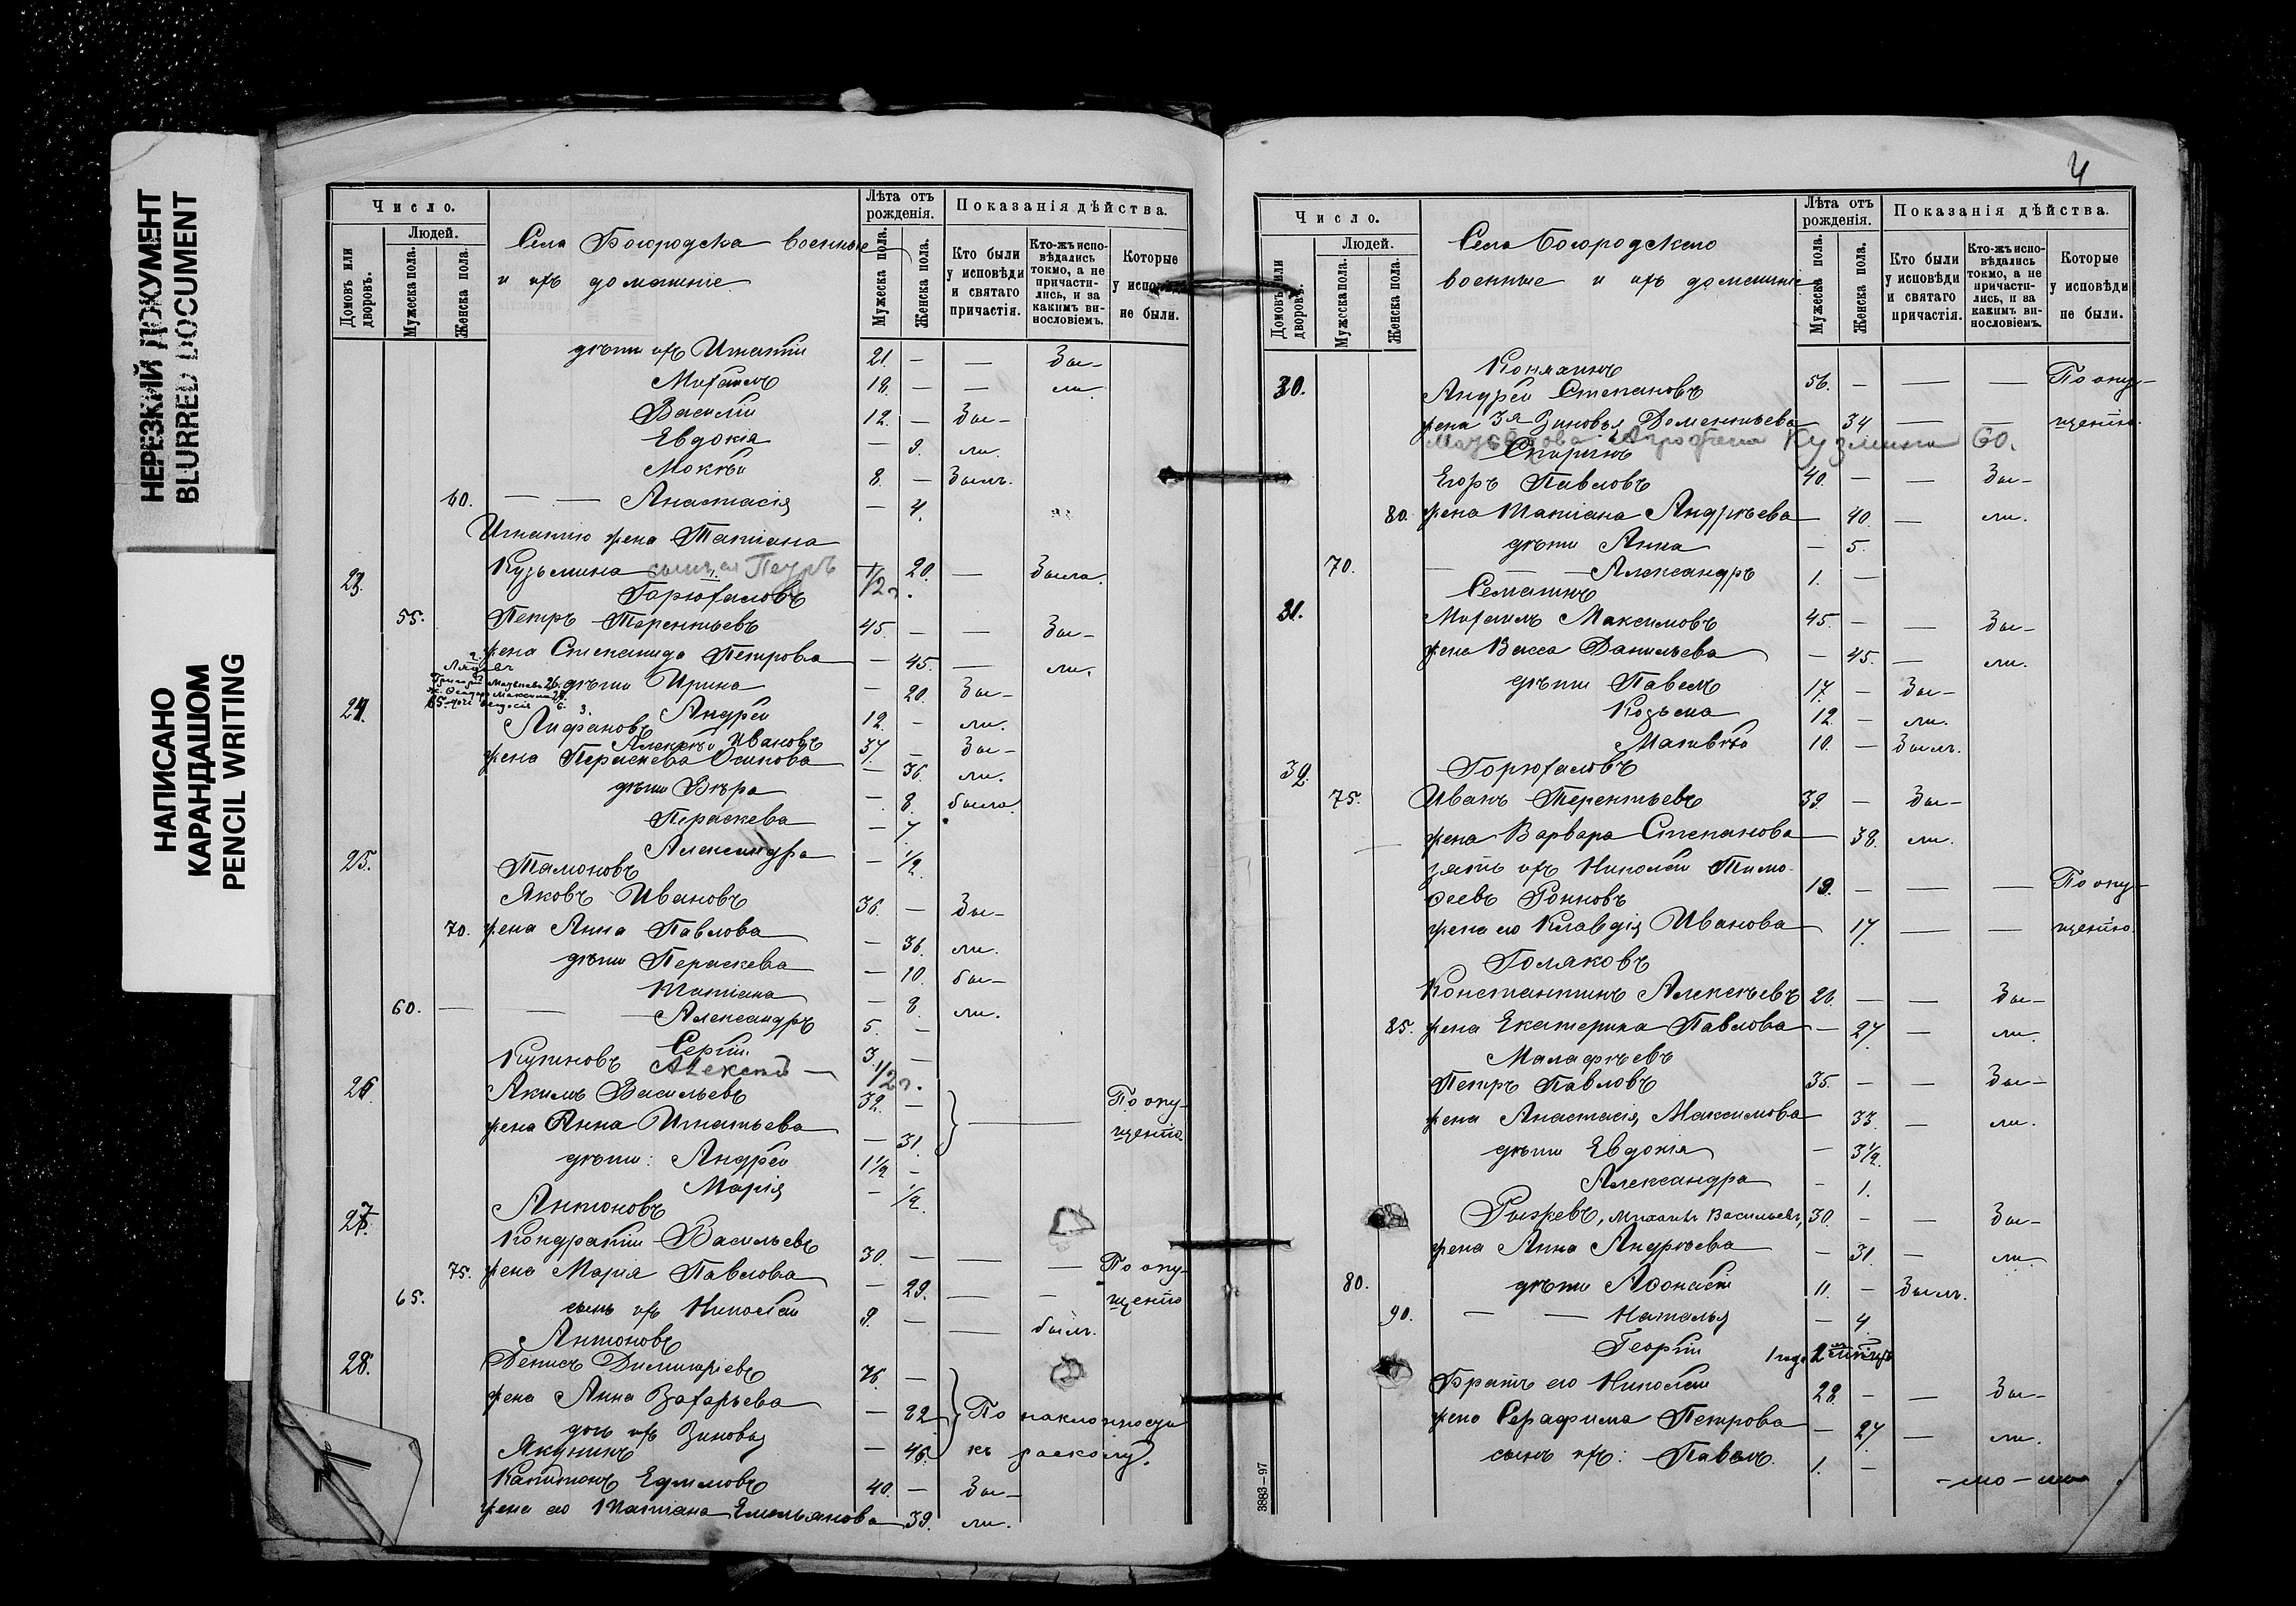 НЕРЕЗКИЙ ДОКУМЕНТ
BLURRED DOCUMENT
НАПИСАНО
КАРАНДАШОМ
PENCIL WRITING
Число.
Людей.
Домовъ или дворовъ.
Мужеска пола.
Женска пола.
Села Богородска военные
и ихъ домашніе
Лѣта отъ рожденія.
Мужеска пола.
Женска пола.
Показанія дѣйства.
Кто были у исповѣди и святаго причастія.
Кто-жъ исповѣдались токмо, а не причастились, и за какимъ винословіемъ.
Которые у исповѣди не были.
дѣти ихъ Игнатій 21. — — Бы-
Михаилъ 18. — — ли.
Василій 12. — Бы-
Евдокія — 9. ли.
Мокѣй 8. — Былъ.
60. — — Анастасія — 4.
Игнатію жена Татіана
Кузьмина сынъ ея Петръ 1/2 г. 20. — Была.
23. Горюхаловъ
55. Петръ Терентьевъ 45. — — Бы-
жена Степанида Петрова — 45. — ли.
дѣти Ирина — 20. Бы-
Андрей 12. — ли.
24. Алексѣй Ивановъ 37. — Бы-
жена Перасковева Осипова — 36. ли.
дѣти Вѣра — 8. была
Параскева — 7.
Александра — 1/2.
25. Тамоновъ
Яковъ Ивановъ 36. — Бы-
70. жена Анна Павлова — 36. ли.
дѣти Параскева — 10. бы-
Татіана — 8. ли.
60. — — Александръ 5. —
Сергій 3. —
Алексѣй — 1/2 г.
26. Акимъ Васильевъ 32. — По опу-
жена Анна Игнатьева — 31. — щенію
дѣти: Андрей 1 1/2 —
Марія — 1/2.
27. Антоновъ
Кондратій Васильевъ 30. — — — По опу-
75. жена Марія Павлова — 29. — — щенію
65. сынъ ихъ Николай 9. — — былъ.
Антоновъ
28. Денисъ Димитріевъ 76. —
жена Анна Захарьева — 82 По наклонности
дочь ихъ Зиновья — 46. къ расколу.
Якунинъ
Капитонъ Ефимовъ 40. — Бы-
жена его Татіана Емельянова 39. ли.
4
Число.
Людей.
Домовъ или дворовъ.
Мужеска пола.
Женска пола.
Села Богородского
военные и ихъ домашніе
Лѣта отъ рожденія.
Мужеска пола.
Женска пола.
Показанія дѣйства.
Кто были у исповѣди и святаго причастія.
Кто-жъ исповѣдались токмо, а не причастились, и за какимъ винословіемъ.
Которые у исповѣди не были.
Коняхинъ
30. Андрей Степановъ 56. — — — По опу-
жена 3я Зиновья Дементьева 34 — — щенію.
Кузмина 60.
Спиринъ
Егоръ Павловъ 40. — — Бы-
80. жена Татіана Андрѣева 40. — ли.
дѣти Анна — 5.
70. — — Александръ 1. —
31. Михаилъ Максимовъ 45. — — Бы-
жена Васса Данильева — 45. — ли.
дѣти Павелъ 17. — Бы-
Козьма 12. — ли.
Матвѣй 10. — Былъ.
32. Горюхаловъ
75. Иванъ Терентьевъ 39. — Бы-
жена Варвара Степанова 38. ли.
зять ихъ Николай Тимо-
ѳеевъ 19. — — — По опу-
жена его Клавдія Иванова 17. — — щенію.
Голяковъ
Константинъ Алексѣевъ 26. — — Бы-
85. жена Екатерина Павлова — 27. — ли.
Малафѣевъ
Петръ Павловъ 35. — — Бы-
жена Анастасія Максимова 33. — ли.
дѣти Евдокія — 3 1/2.
Александра — 1.
Рыжевъ, Михаилъ Васильевъ, 30. — — Бы-
жена Анна Андрѣева — 31. — ли.
80. дѣти Аѳонасій 11. — Былъ.
90. — — Наталья — 4.
Георгій 1 годъ
Братъ его Николай 28. — — Бы-
жена Серафима Петрова — 27. — ли.
сынъ ихъ: Павелъ. 1. —
3883—97